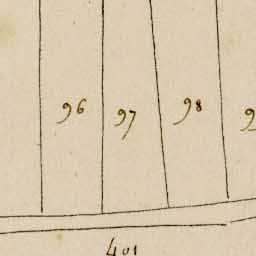 96 97 98
401